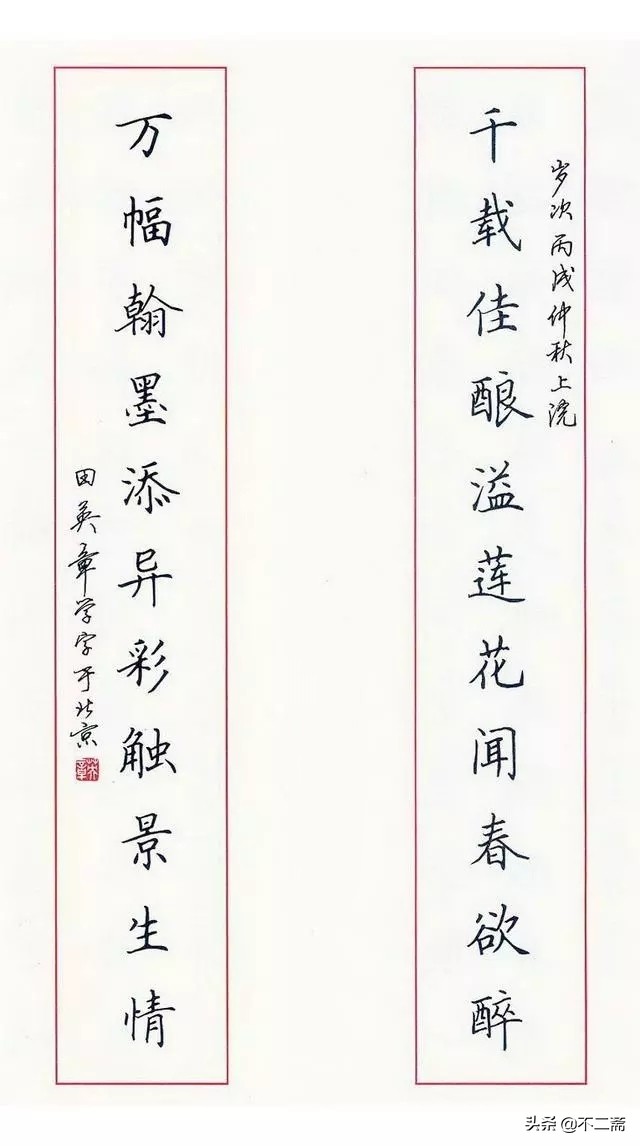 岁次丙戌仲秋上浣
千载佳酿溢莲花闻春欲醉
万幅翰墨添异彩触景生情
田英章学字于北京
英章
头条 @不二斋